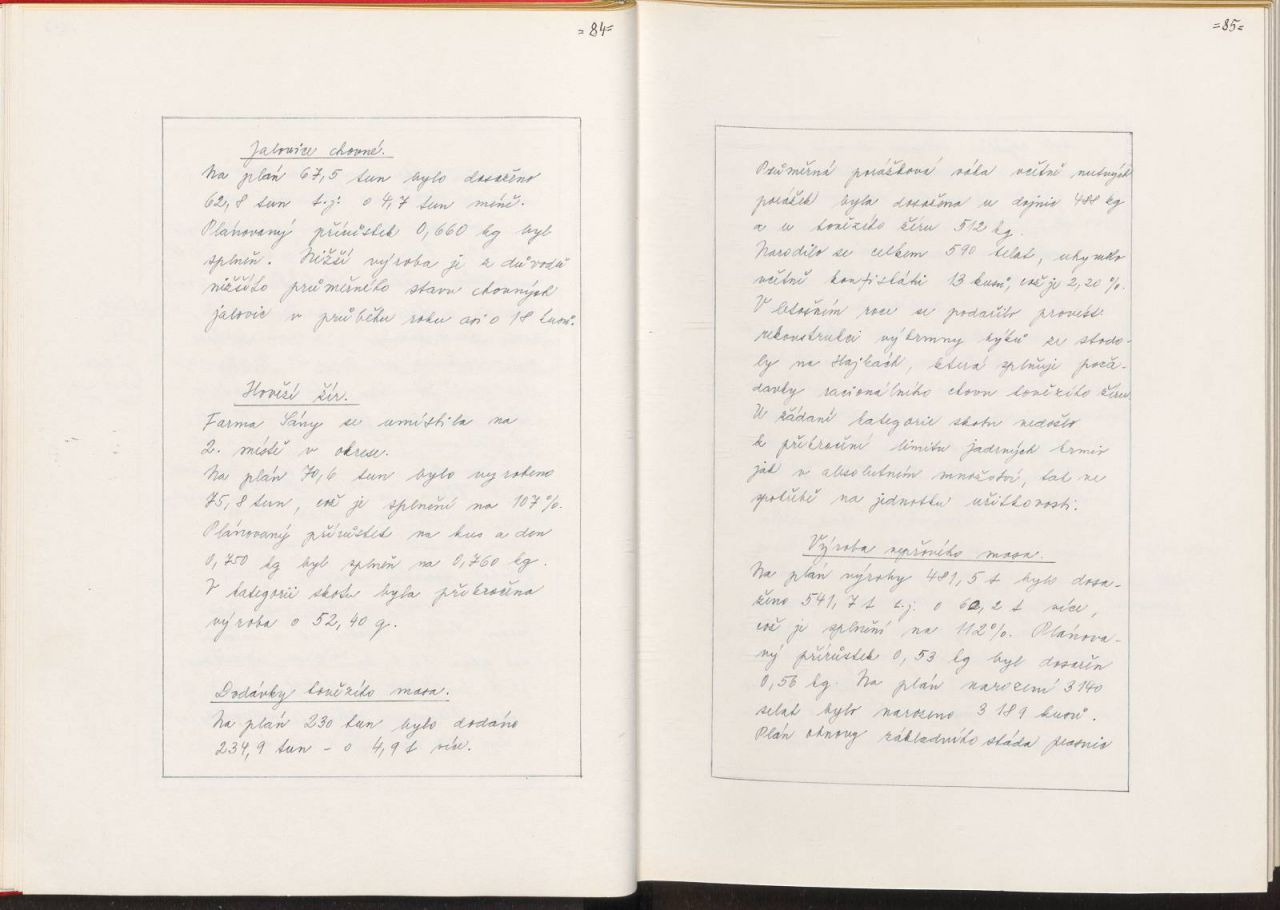 =84=
Jalovice chovné.
Na plán 67,5 tun bylo dosaženo
62,8 tun t.j. o 4,7 tun méně.
Plánovaný přírůstek 0,660 kg byl
splněn. Nižší výroba je z důvodů
nižšího průměrného stavu chovných
jalovic v průběhu roku asi o 18 kusů.
Hovězí žír.
Farma Sány se umístila na
2. místě v okrese.
Na plán 70,6 tun bylo vyrobeno
75,8 tun, což je splnění na 107%.
Plánovaný přírůstek na kus a den
0,750 kg byl splněn na 0,760 kg.
V kategorii skotu byla překročena
výroba o 52,40 q.
Dodávky hovězího masa.
Na plán 230 tun bylo dodáno
234,9 tun - o 4,9 t více.
=85=
Průměrná porážková váha včetně nutných
porážek byla dosažena u dojnic 488 kg
a u hovězího žíru 512 kg.
Narodilo se celkem 590 telat, uhynulo
včetně konfiskátů 13 kusů, což je 2,20 %.
V letošním roce se podařilo provést
rekonstrukci výkrmny býků ze stodo-
ly na Hájkách, která splňuje poža-
davky racionálního chovu hovězího žíru.
U žádané kategorie skotu nedošlo
k překročení limitu jadrných krmiv
jak v absolutním množství, tak ve
spotřebě na jednotku užitkovosti.
Výroba vepřového masa.
Na plán výroby 481,5 t bylo dosa-
ženo 541,7 t t.j. o 60,2 t více,
což je splnění na 112%. Plánova-
ný přírůstek 0,53 kg byl dosažen
0,56 kg. Na plán narození 3140
selat bylo narozeno 3 189 kusů.
Plán obnovy základního stáda prasnic